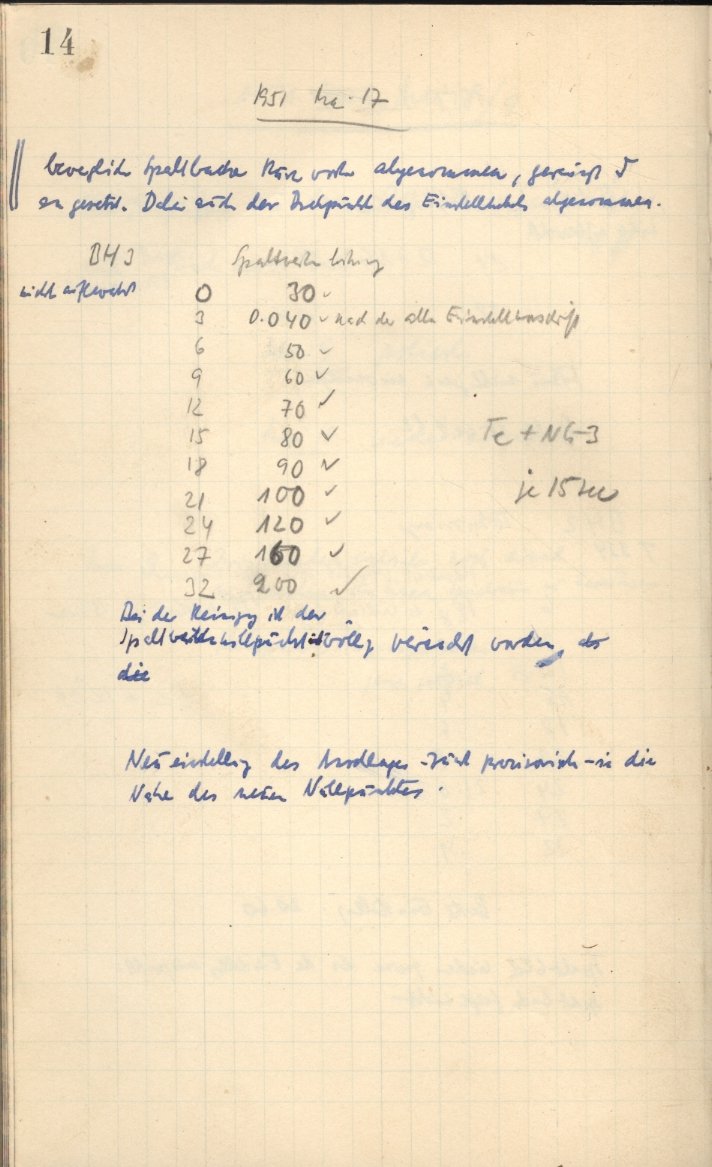 14
1951 Mai 17
bewegliche Spaltbacke kurz vorher abgenommen, gereinigt &
angesetzt. Dabei auch der Drehpunkt des Einstellhebels abgenommen.
BH3 Spaltverbreiterung
nicht aufbewahrt
0 30
3 0.040 ✓ nach der alten Einstellvorschrift
6 50 ✓
9 60 ✓
12 70 ✓
15 80 ✓
18 90 ✓
21 100 ✓
24 120 ✓
27 160 ✓
32 200 ✓
+ NG-3
je 15 sec
Bei der Reinigung ist der
völlig worden, als
die
Neueinstellung des Anschlages - provisorisch - in die
Nähe des neuen Nullpunktes.